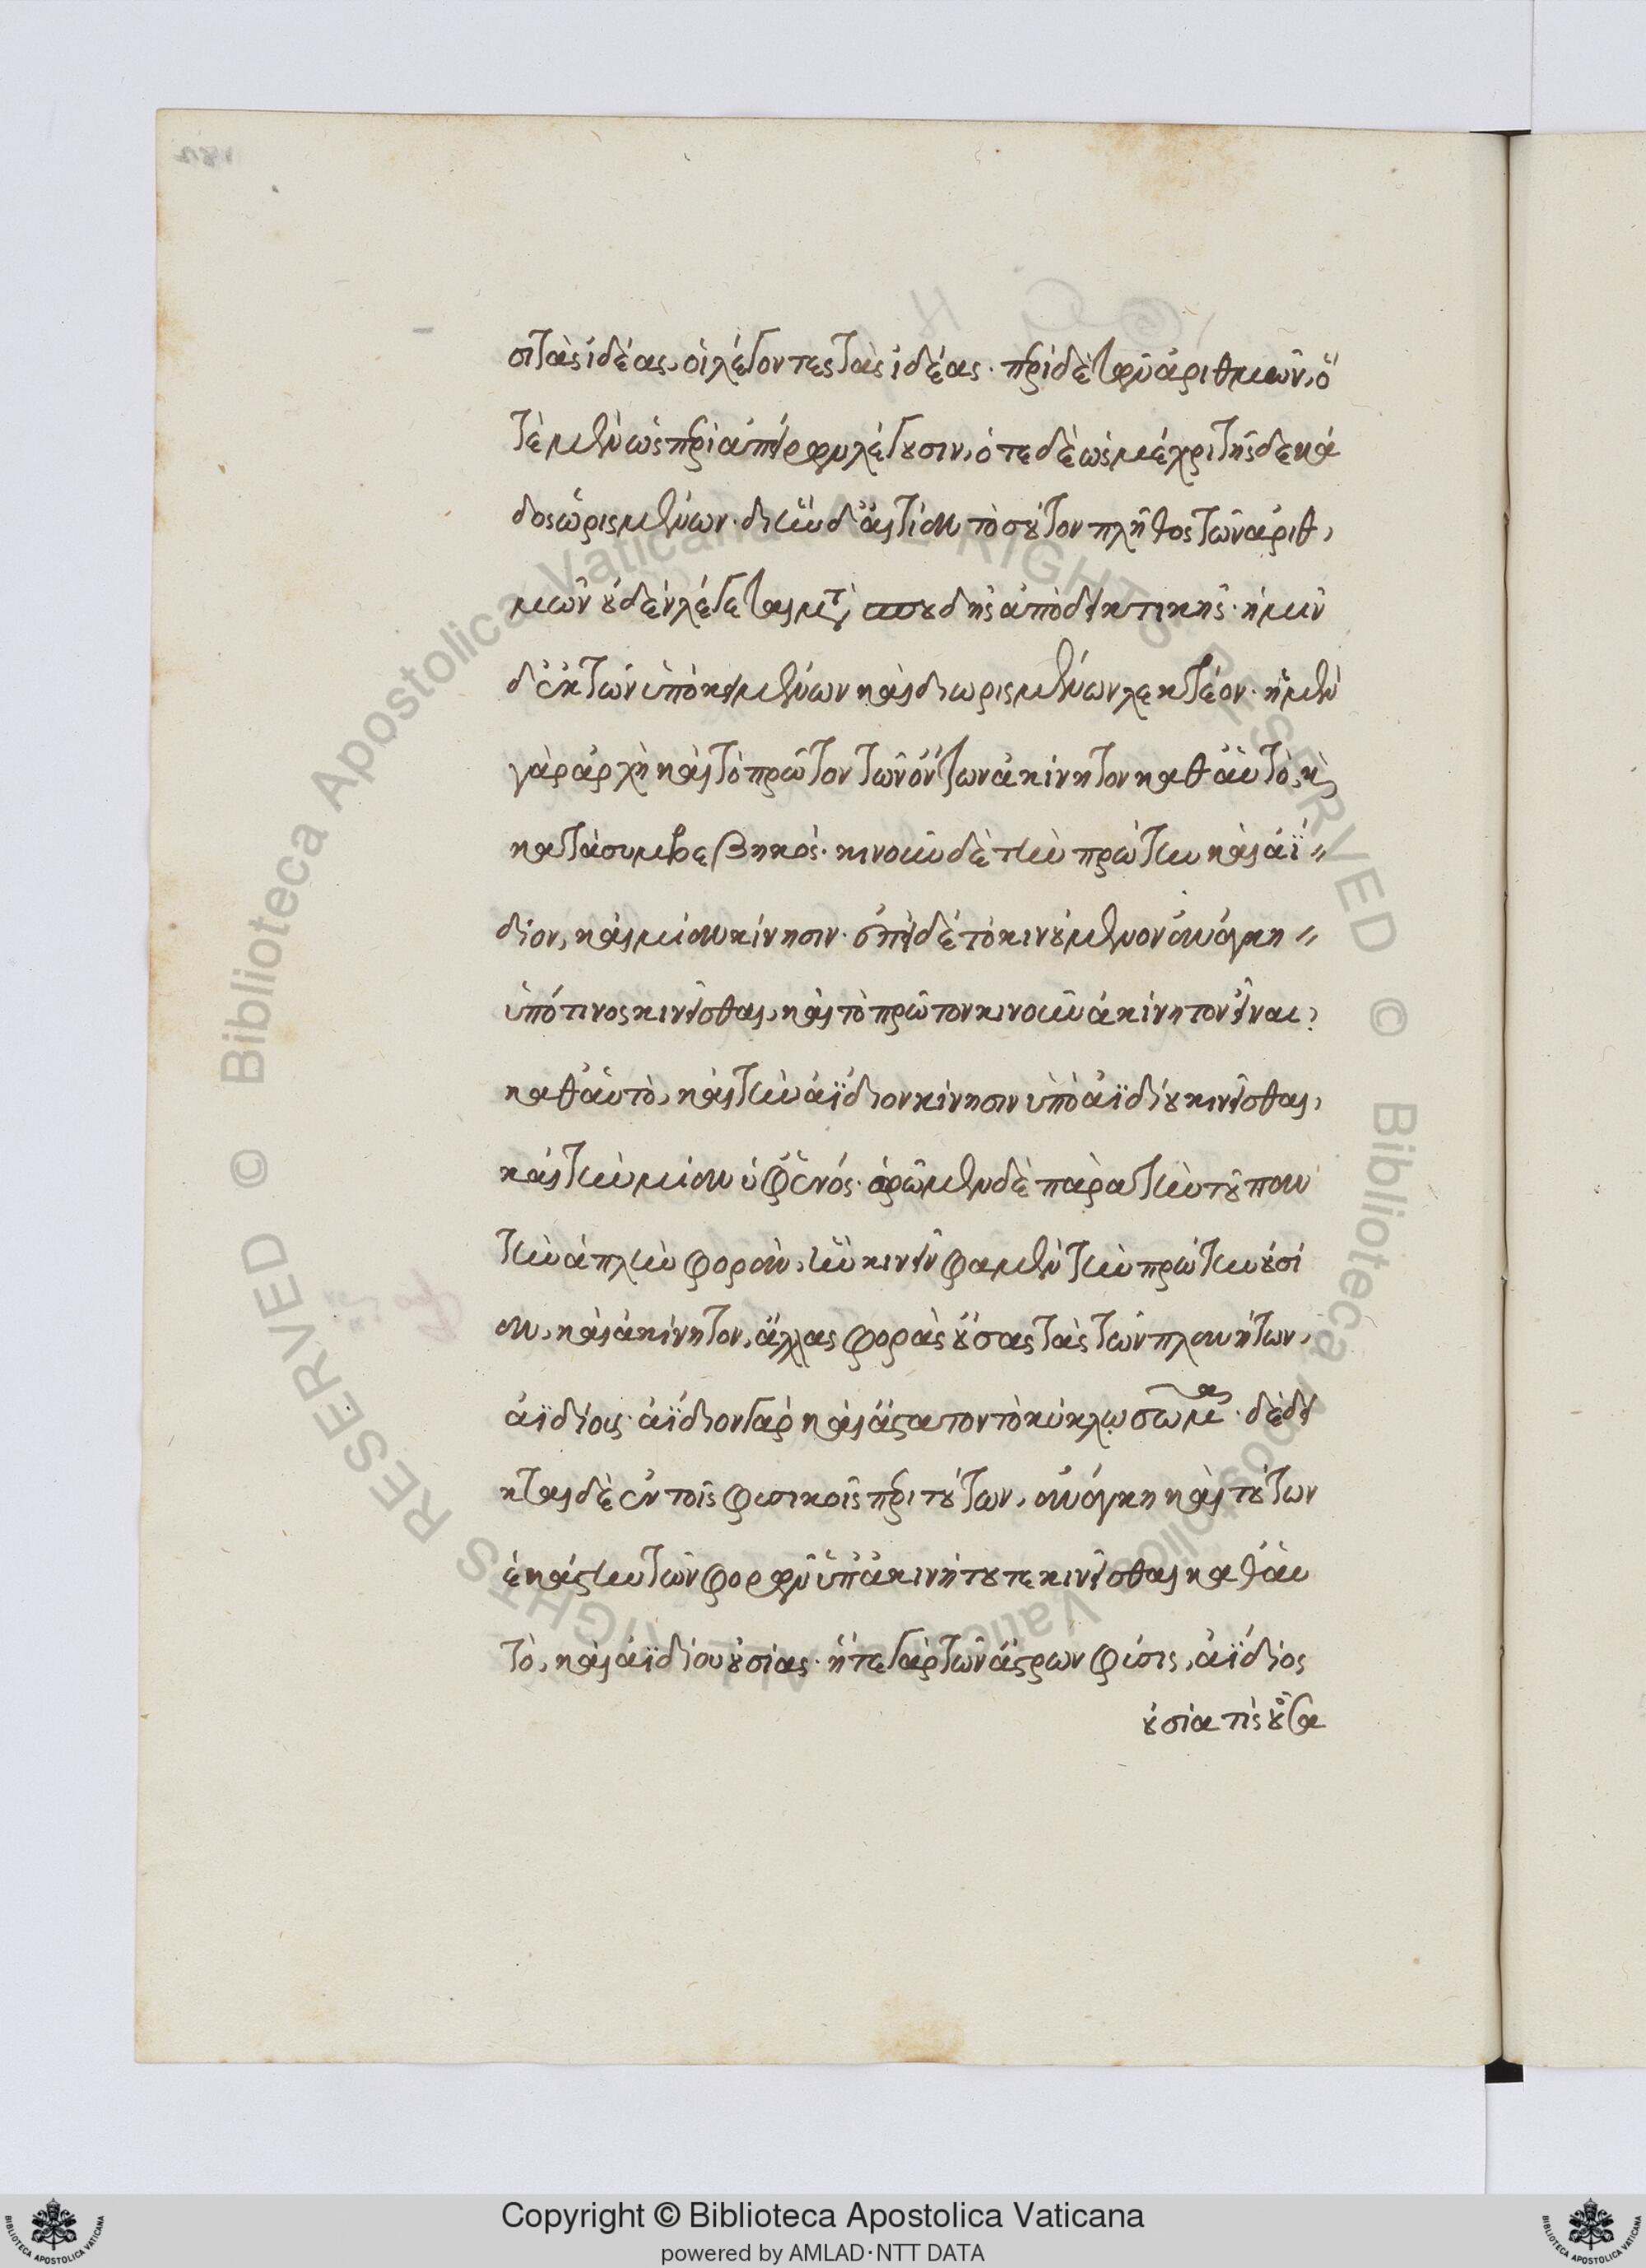 σι τὰς ἰδέας, οἱ λέγοντες τὰς ἰδέας· περὶ δὲ τῶν ἀριθμῶν, ὁ
τὲ μὲν ὡς περὶ ἀπείρων λέγουσιν, ὁτὲ δὲ ὡς μέχρι τῆς δεκά
δος ὡρισμένων· δι' ἣν δ' αἰτίαν τοσοῦτον πλῆθος τῶν ἀριθ,
μῶν οὐδὲν λέγεται μετὰ σπουδῆς ἀποδεικτικῆς· ἡμῖν
δ' ἐκ τῶν ὑποκειμένων καὶ διωρισμένων λεκτέον· ἡ μὲν
γὰρ ἀρχὴ καὶ τὸ πρῶτον τῶν ὄντων ἀκίνητον καθ' αὑτὸ, καὶ
κατὰ συμβεβηκός· κινοῦν δὲ τὴν πρώτην καὶ ἀΐ〃
διον, καὶ μίαν κίνησιν· ἐπεὶ δὲ τὸ κινούμενον ἀνάγκη〃
ὑπό τινος κινεῖσθαι, καὶ τὸ πρῶτον κινοῦν ἀκίνητον εἶναι,
καθ' αὑτὸ, καὶ τὴν ἀΐδιον κίνησιν ὑπὸ ἀϊδίου κινεῖσθαι,
καὶ τὴν μίαν ὑφ' ἑνός· ὁρῶμεν δὲ παρὰ τὴν τοῦ παν
τὴν ἁπλὴν φορὰν, ἣν κινεῖν φαμὲν τὴν πρώτην οὐσί
αν, καὶ ἀκίνητον, ἄλλας φορὰς οὔσας τὰς τῶν πλανήτων,
ἀϊδίους· ἀΐδιον γὰρ καὶ ἄστατον τὸ κύκλῳ σῶμα· δέδει
κται δὲ ἐν τοῖς φυσικοῖς περὶ τούτων, ἀνάγκη καὶ τούτων
ἑκάστην τῶν φορῶν ὑπ' ἀκινήτου τε κινεῖσθαι καθ' αὑ
τὸ, καὶ ἀϊδίου οὐσίας· ἥ τε γὰρ τῶν ἄστρων φύσις, ἀΐδιός
οὐσία τὶς οὖσα
Copyright © Biblioteca Apostolica Vaticana
powered by AMLAD·NTT DATA